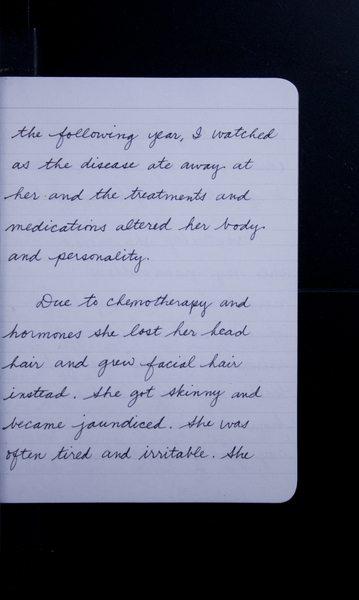 the following year, I watched
as the disease ate away at
her and the treatments and
medications altered her body
and personality.
Due to chemotherapy and
hormones she lost her head
hair and grew facial hair
instead. She got skinny and
became jaundiced. She was
often tired and irritable. She